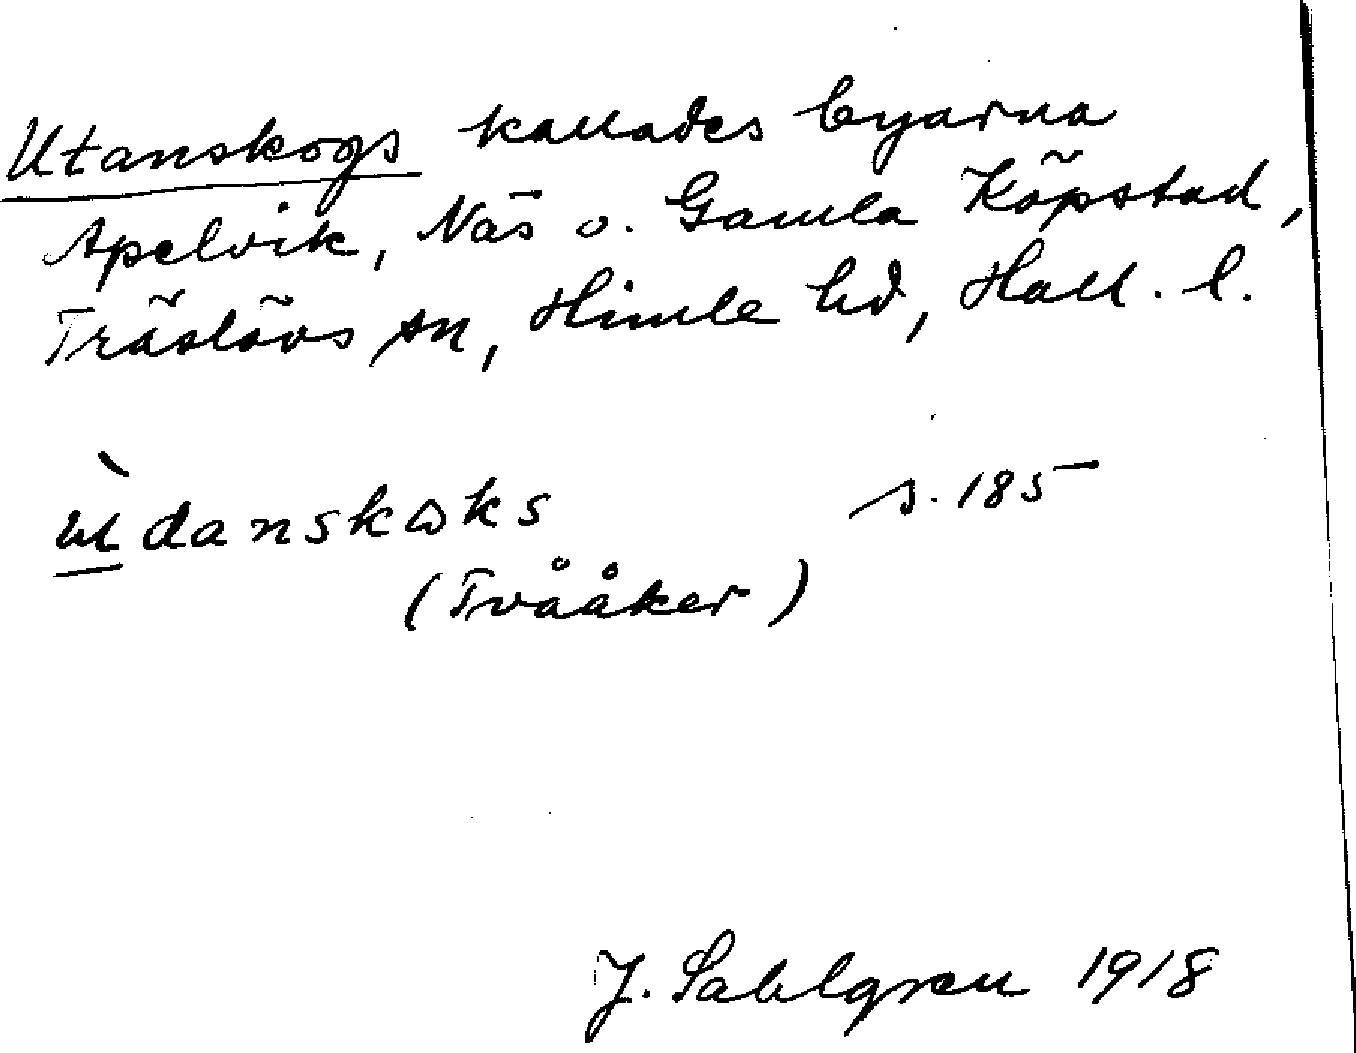 Utanskogs kallades byarna
Apelvik, Näs o. Gamla Köpstad,
Träslövs sn, Himle hd, Hall. l.
ùdanskωks s. 185
(Tvååker)
J. Sahlgren 1918